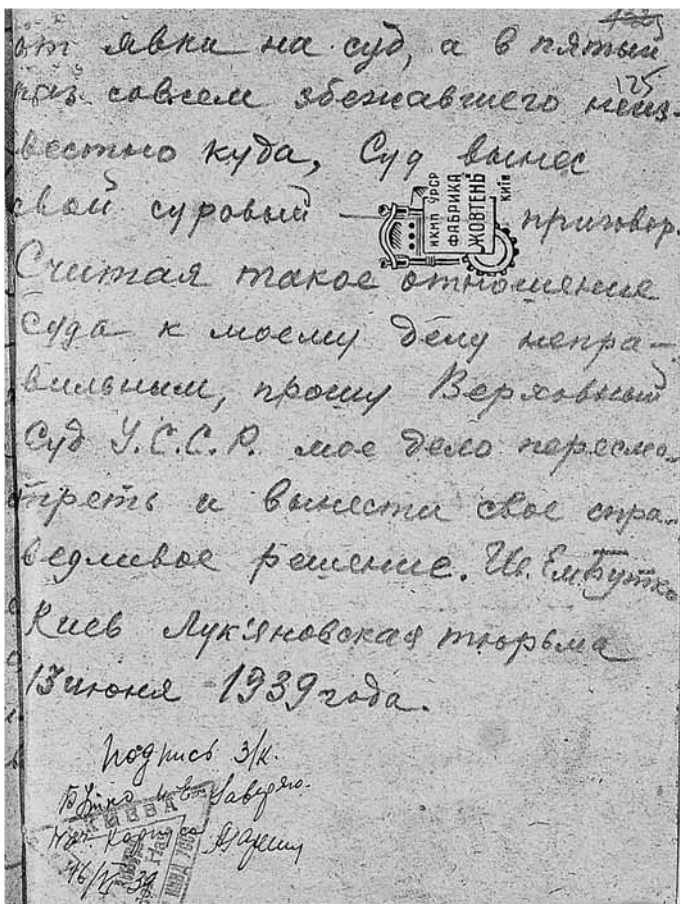 125
от явки на суд, а в пятый
раз совсем збежавшего неиз-
вестно куда, Суд вынес
свой суровый — приговор.
НХМП УРСР
ФАБРИКА
ЖОВТЕНЬ
КИЇВ
Считая такое отношение
Суда к моему делу непра-
вильным, прошу Верховный
Суд У.С.С.Р. мое дело пересмо-
треть и вынести свое спра-
ведливое решение. Ив. Ем. Бутко
Киев Лук'яновская тюрьма
13 июня 1939 года.
Подпись з/к.
Бутко И. Е. Заверяю.
Нач корпуса
16/VI 39